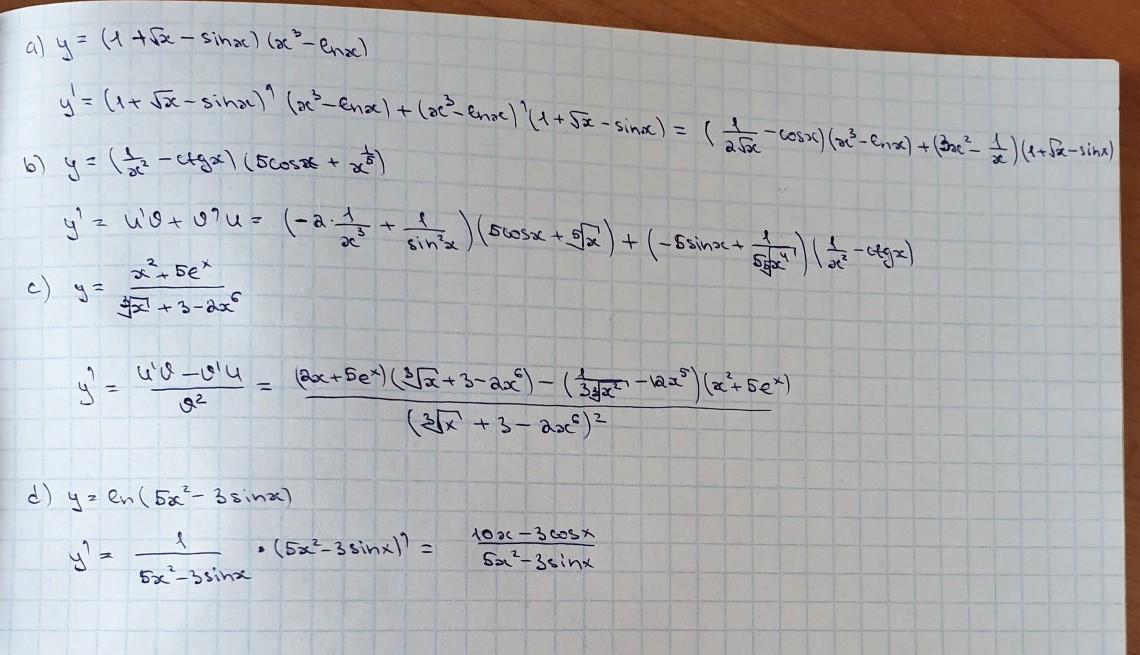 a) y = (1 + √x − sinx) (x³ − lnx)
y' = (1 + √x − sinx)' (x³ − lnx) + (x³ − lnx)' (1 + √x − sinx) = (1/(2√x) − cosx) (x³ − lnx) + (3x² − 1/x) (1 + √x − sinx)
b) y = (1/x² − ctgx) (5cosx + x^(1/5))
y' = u'v + v'u = (−2 · 1/x³ + 1/sin²x) (5cosx + ⁵√x) + (−5sinx + 1/(5 ⁵√x⁴)) (1/x² − ctgx)
c) y = (x² + 5eˣ)/(³√x + 3 − 2x⁶)
y' = (u'v − v'u)/v² = ((2x + 5eˣ) (³√x + 3 − 2x⁶) − (1/(3 ³√x²) − 12x⁵) (x² + 5eˣ))/(³√x + 3 − 2x⁶)²
d) y = ln(5x² − 3sinx)
y' = 1/(5x² − 3sinx) · (5x² − 3sinx)' = (10x − 3cosx)/(5x² − 3sinx)